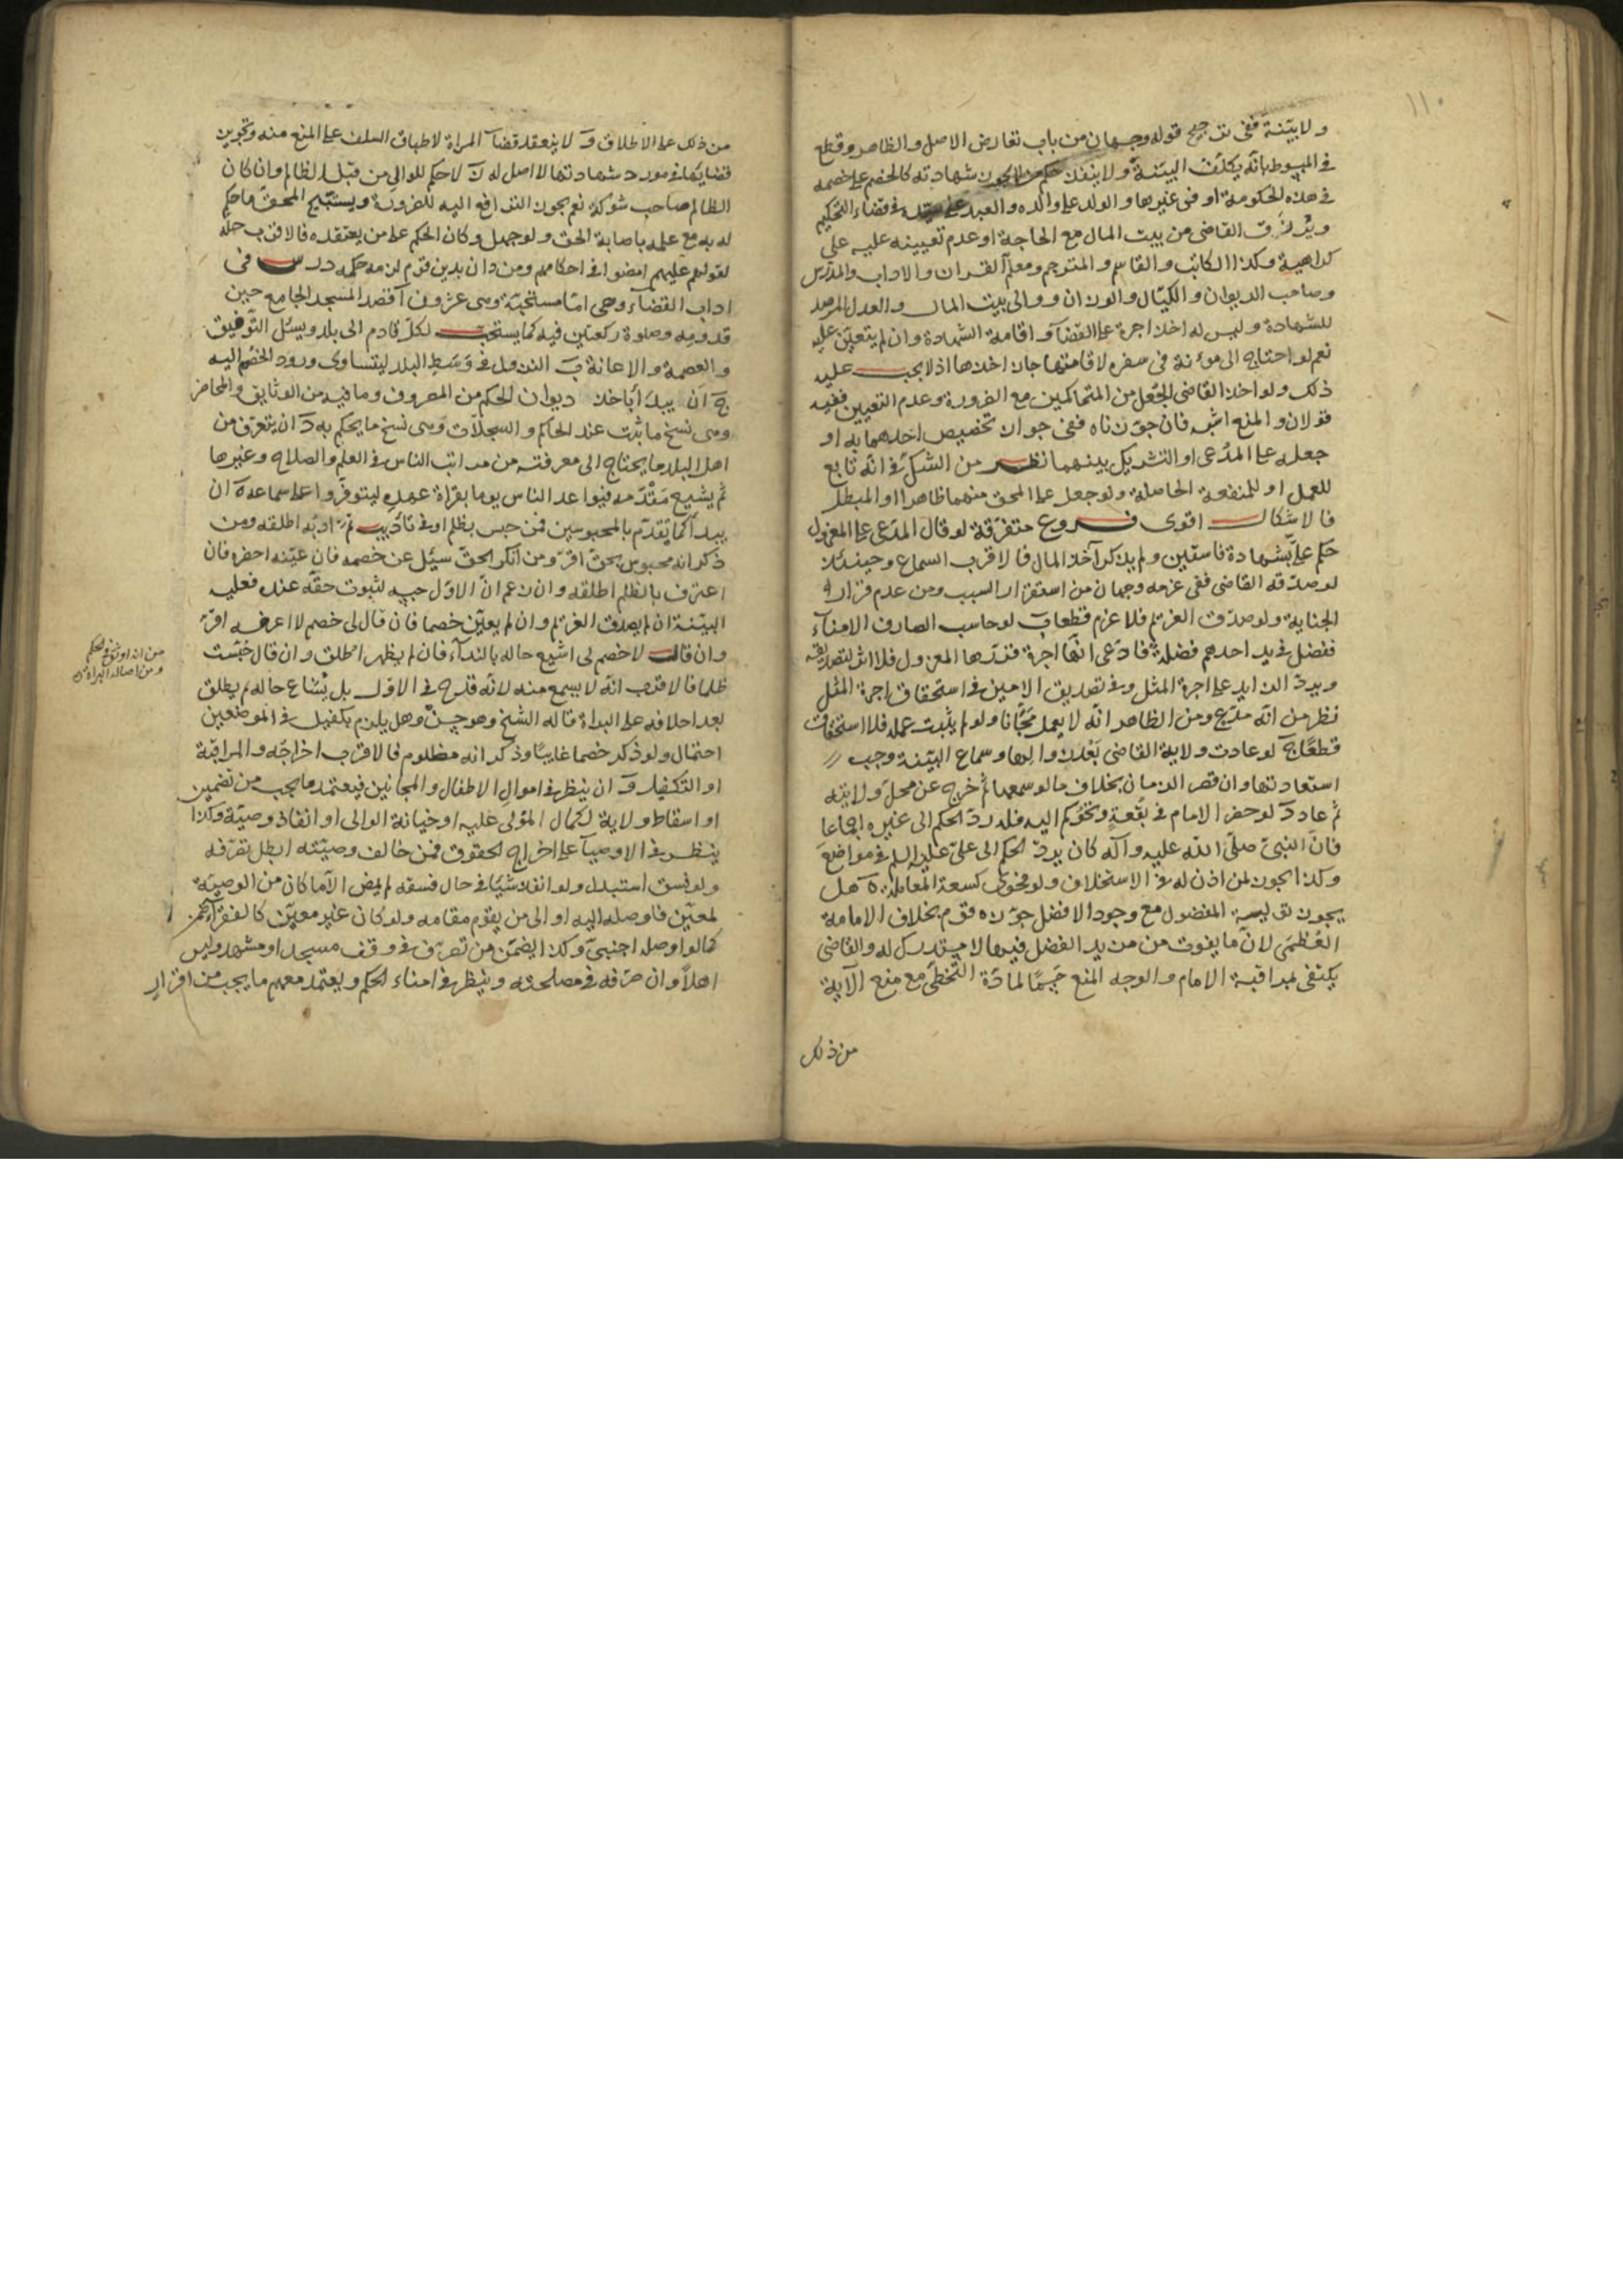 ١١٠
ولا بيّنة ففى ترجيح قوله وجهان من باب تعارض الاصل والظاهر وقطع
فى المبسوط بانّه يكلّف البيّنة ولا ينفذ حكم من لا يجوز شهادته كالخصم على خصمه
فى هذه الحكومة او فى غيرها والولد على والده والعبد على سيّده فى قضاء التحكيم
ويُرزَق القاضى من بيت المال مع الحاجة او عدم تعيينه عليه على
كراهية وكذا الكاتب والقاسم والمترجم ومعلّم القران والاداب والمدرّس
وصاحب الديوان والكيّال والوزان ووالى بيت المال والعدل المرصد
للشهادة وليس له اخذ اجرة على القضآ واقامة الشهادة وان لم يتعيّن عليه
نعم لو احتاج الى مؤنة فى سفره لاقامتها جاز اخذها اذ لا يجب عليه
ذلك ولو اخذ القاضى الجُعل من المتحاكمين مع الضرورة وعدم التعيين ففيه
قولان والمنع اشبه فان جوّزناه ففى جواز تخصيص احدهما به او
جعله على المدّعى او التشريك بينهما نظر من الشك فى انّه تابع
للعمل او للمنفعة الحاصلة ولو جعل على المحق منهما ظاهرا او المبطل
فالاشكال اقوى فروع متفرّقة لو قال المدّعى على المعزول
حكم علىّ بشهادة فاسقين ولم يذكر آخذ المال فالاقرب السماع وحينئذ
لو صدّقه القاضى ففى غرمه وجهان من استقرار السبب ومن عدم قرار
الجناية ولو صدّق الغريم فلا غرم قطعا ب لو حاسب الصارف الامنآء
ففضل فى يد احدهم فضلة فادّعى انّها اجرة قدّرها المعزول فلا اثر لتصديقه
ويردّ الزايد على اجرة المثل وفى تصديق الامين فى استحقاق اجرة المثل
نظر من انّه مدّع ومن الظاهر انّه لا يعمل مَجّانا ولو لم يثبت عمله فلا استحقاق
قطعًا ج لو عادت ولاية القاضى بَعْدَ زوالها وسماع البيّنة وجب
استعادتها وان قصر الزمان بخلاف ما لو سمعها ثم خرج عن محلّ ولايته
ثم عاد د لو حضر الامام فى بُقعةٍ وتُحُوكِمَ اليه فله ردّ الحكم الى غيره اجماعا
فانّ النبىّ صلّى اللّه عليه وآله كان يردّ الحكم الى علىّ عليه السلم فى مواضعَ
وكذا يجوز لمن اذن له فى الاستخلاف ولو بفحوى كسعة المعاملة ه هل
يجوز تولية المفضول مع وجود الافضل جوّزه قوم بخلاف الامامة
العُظمىٰ لانّ ما يفوت من مزيد الفضل فيها لا يستدرك له والقاضى
يكتفى بمراقبة الامام والوجه المنع حَسْمًا لمادّة التخطّى مع منع الآية
من ذلك
من ذلك على الاطلاق و لا ينعقد قضآء المراة لاطباق السلف على المنع منه وتجويز
قضايئها فى مورد شهادتها لا اصل له ز لا حكم للوالى من قبل الظالم وان كان
الظالم صاحب شوكة نعم يجوز الترافع اليه للضرورة ويستبيح المحقّ ما حكم
له به مع علمه باصابة الحق ولو جهل وكان الحكم على من يعتقده فالاقرب حلّه
لقولهم عليهم امضوا فى احكامهم ومن دان بدين قوم لزمه حكمه درس فى
اداب القضآء وهى امّا مستحبّة وهى عشرون ا قصد المسجد الجامع حين
قدومه وصلوة ركعتين فيه كما يستحبّ لكلّ قادم الى بلد ويسئل التّوفيق
والعصمة والاعانة ب النزول فى وَسَط البلد ليتساوى ورود الخصُم اليه
ج ان يبدأ باخذ ديوان الحكم من المصروف وما فيه من الوثايق والمحاضر
وهى نسخ ما ثبت عند الحاكم والسجلّات وهى نسخ ما يحكم به د ان يتعرّف من
اهل البلد ما يحتاج الى معرفته من مراتب الناس فى العلم والصلاح وغيرها
ثم يشيع مَقْدَمه فيواعد الناس يوما بقراة عهده ليتوفّروا على سماعه ه ان
يبدأ كما تقدّم بالمحبوسين فمن حبس بظلم او فى تأديب تمّ ادبه اطلقه ومن
ذكر انه محبوس بحق اقرّ ومن انكر الحقّ سئل عن خصمه فان عيّنه احضره فان
اعترف بالظلم اطلقه وان زعم انّ الاوّل حبسه لثبوت حقّه عنده فعليه
البيّنة ان لم يصدق الغريم وان لم يعيّن خصما فان قال لى خصم لا اعرفه اقرّ
وان قال لا خصم لى اشيع حاله بالندآء فان لم يظهر اطلق وان قال حُبست
ظلما فالاقرب انّه لا يسمع منه لانّه قدح فى الاوّل بل يُشاع حاله ثم يطلق
بعد احلافه على البراة قاله الشيخ وهو حسنٌ وهل يلزم بكفيل فى الموضعين
احتمال ولو ذكر خصما غايبًا وذكر انه مظلوم فالاقرب اخراجه والمراقبة
او التكفيل و ان ينظر فى اموال الاطفال والمجانين فيعتمد ما يجب من تضمين
او اسقاط ولاية لكمال المولى عليه او خيانة الوالى او انفاذ وصيّة وكذا
ينظر فى الاوصيآء على اخراج الحقوق فمن خالف وصيّته ابطل تصرّفه
ولو فسق استبدل ولو انفذ شيئا فى حال فسقه لم يمض الّا ما كان من الوصية
لمعيّن فاوصله اليه او الى من يقوم مقامه ولو كان غير معيّن كالفقرآء ضمن
كما لو اوصله اجنبىّ وكذا يضمّن من تصرّف فى وقف مسجد او مشهد وليس
اهلًا وان صرفه فى مصلحته وينظر فى امناء الحكم ويعتمد معهم ما يجب من اقرارٍ
ومن اصالة البراة